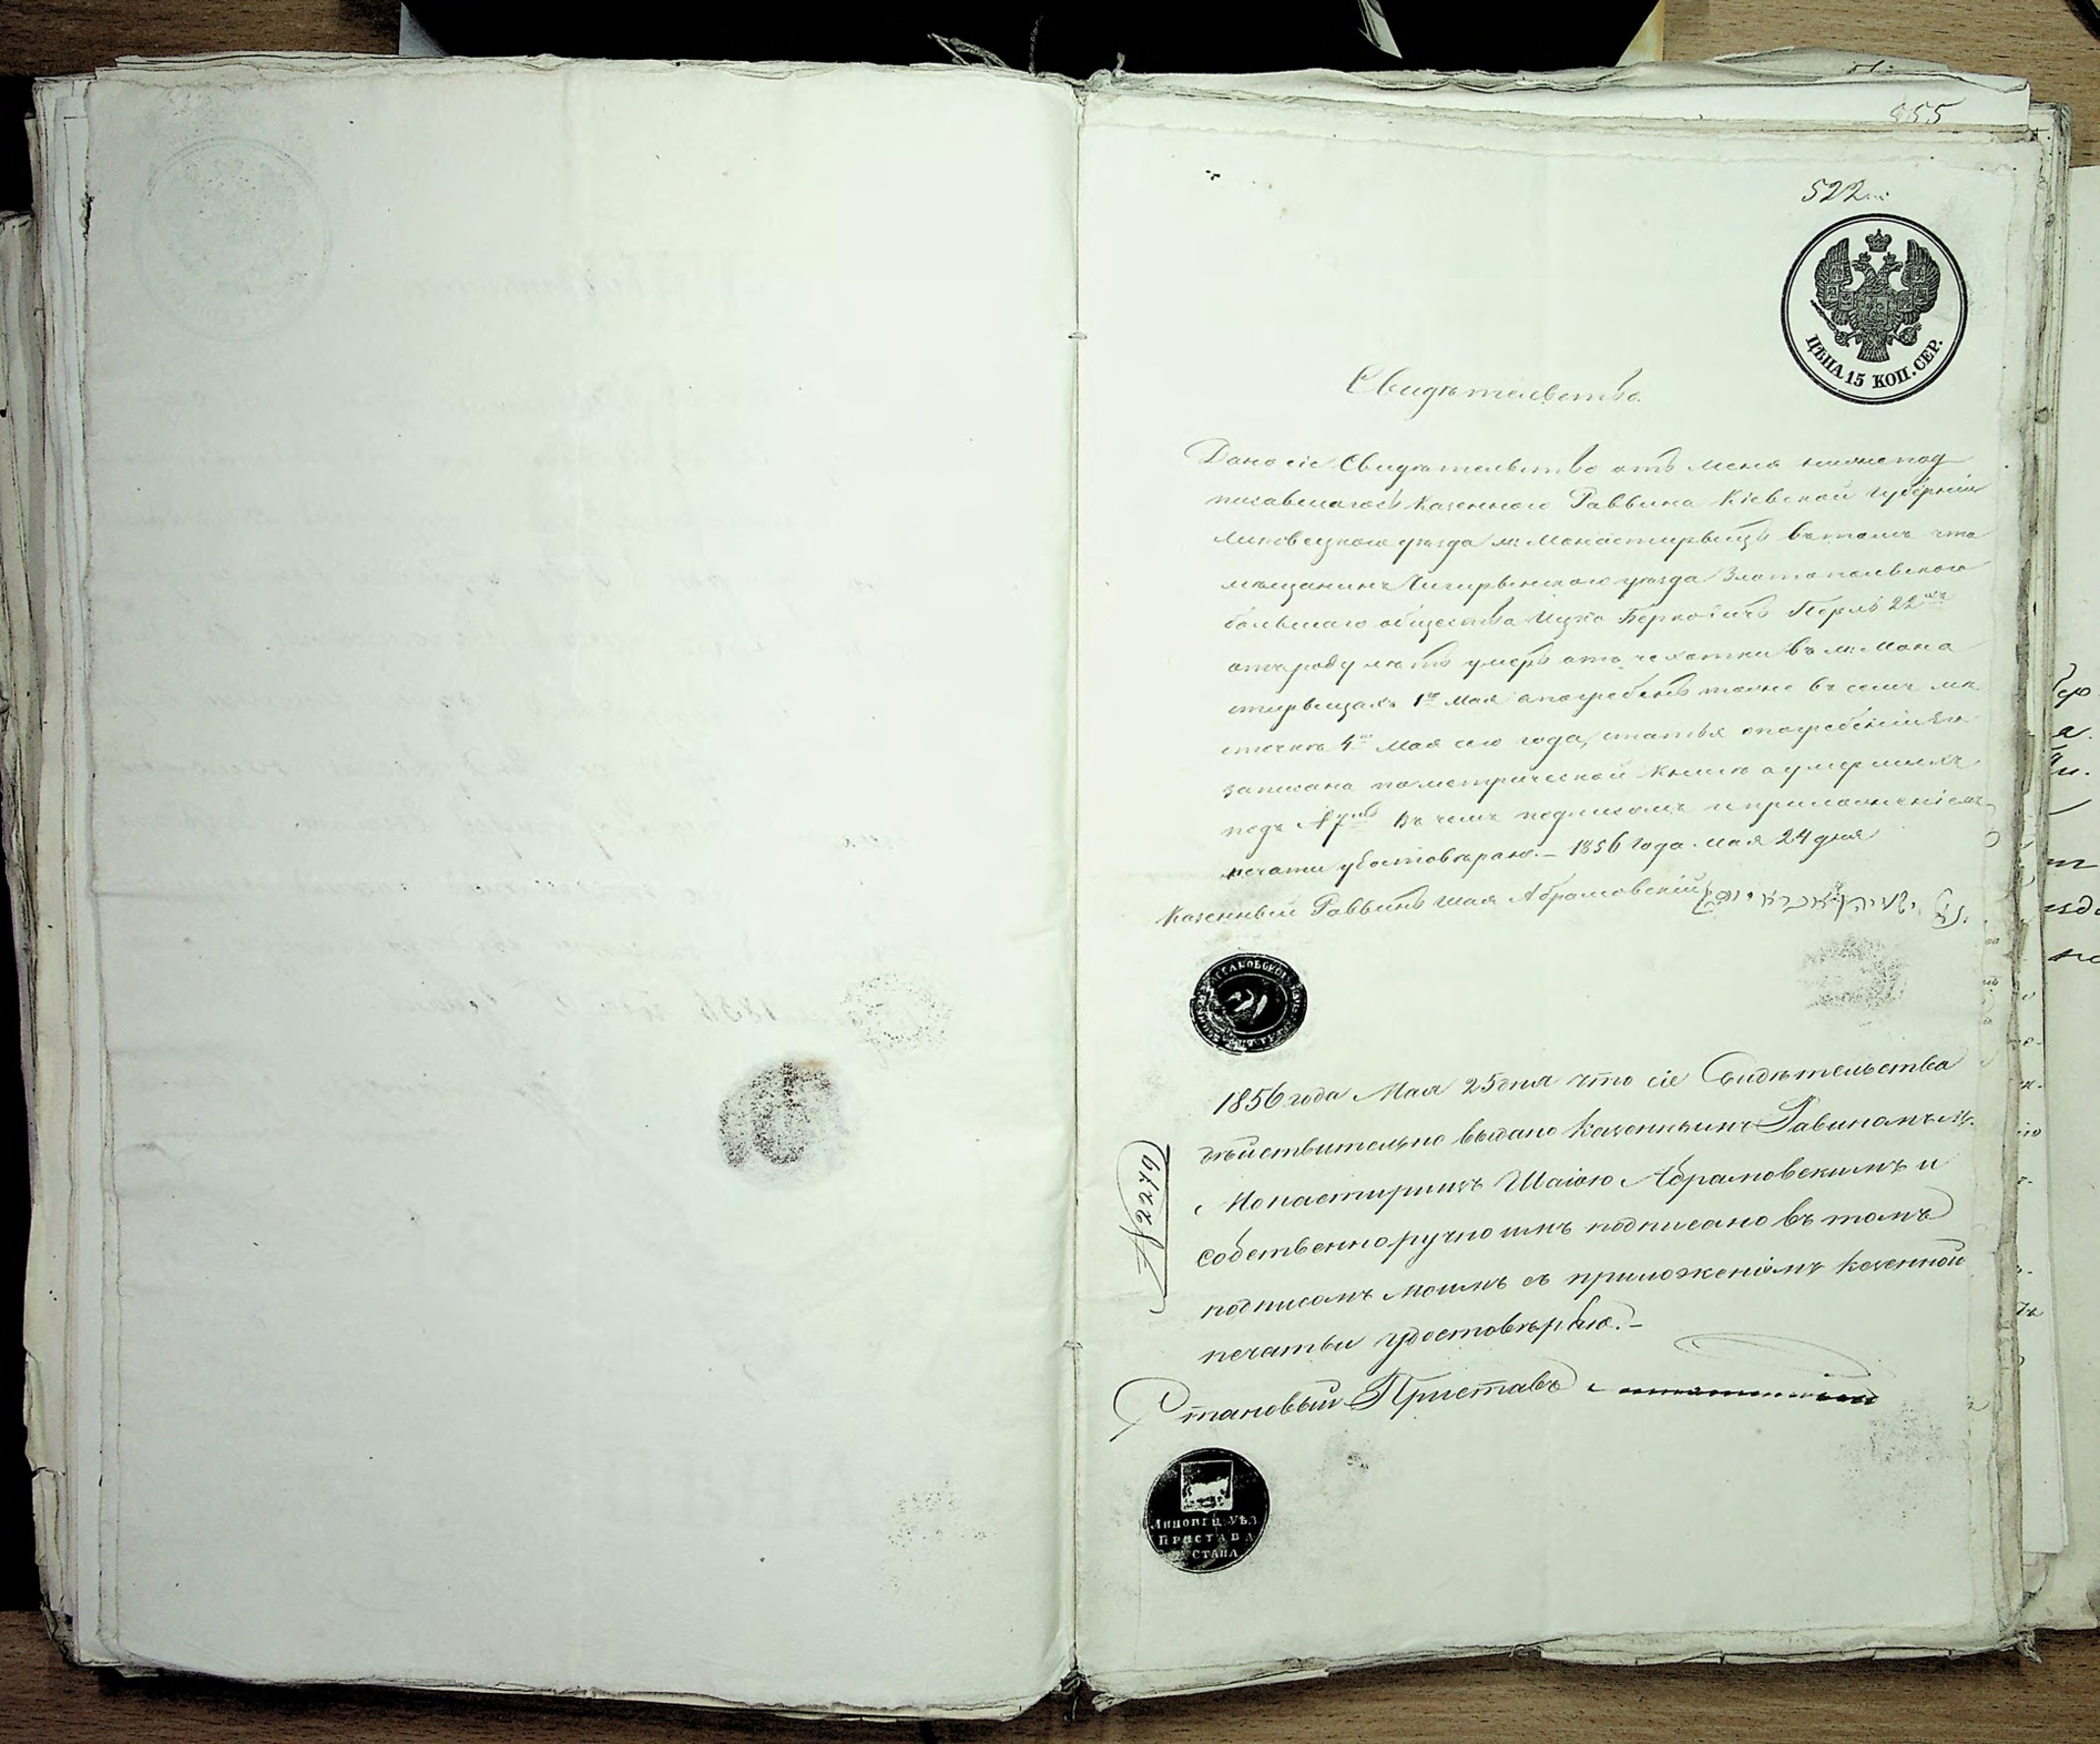 855
522
ЦѢНА 15 КОП. СЕР.
Свидѣтельство.
Дано сіе Свидѣтельство отъ меня нижепод
писавшагося Казенного Раввина Кіевской губерніи
Липовецкого уѣзда м. Монастирьищъ вътомъ что
мѣщанинъ Чигирьнского уѣзда Златопольского
большаго общества Ицко Берковичъ Перль 22
отъ роду лѣтъ умеръ отъ чехотки въ м. Мона
стирьищахъ 1го Мая опогребенъ тоже въ семъ мѣ
стечкѣ 4го Мая сего года, статья опогребеніи
записана пометрической книгѣ оумершихъ
подъ № 7мъ Въ чемъ подписомъ иприложеніемъ
печати удостовѣраю. – 1856 года. мая 24 дня
Казенный Раввинъ Шая Абрамовскій
1856 года Мая 25 дня что сіе Свидѣтельства
дѣйствительно выдано Казеннымъ Равиномъ м.
Монастирищъ Шаіою Абрамовскимъ и
собственноручно имъ подписано въ томъ
подписомъ моимъ съ приложеніемъ казенной
печатьи удостовѣряю. –
Становый Приставъ
ЛИПОВЕЦ. УѢЗ
ПРИСТАВА
СТАНА